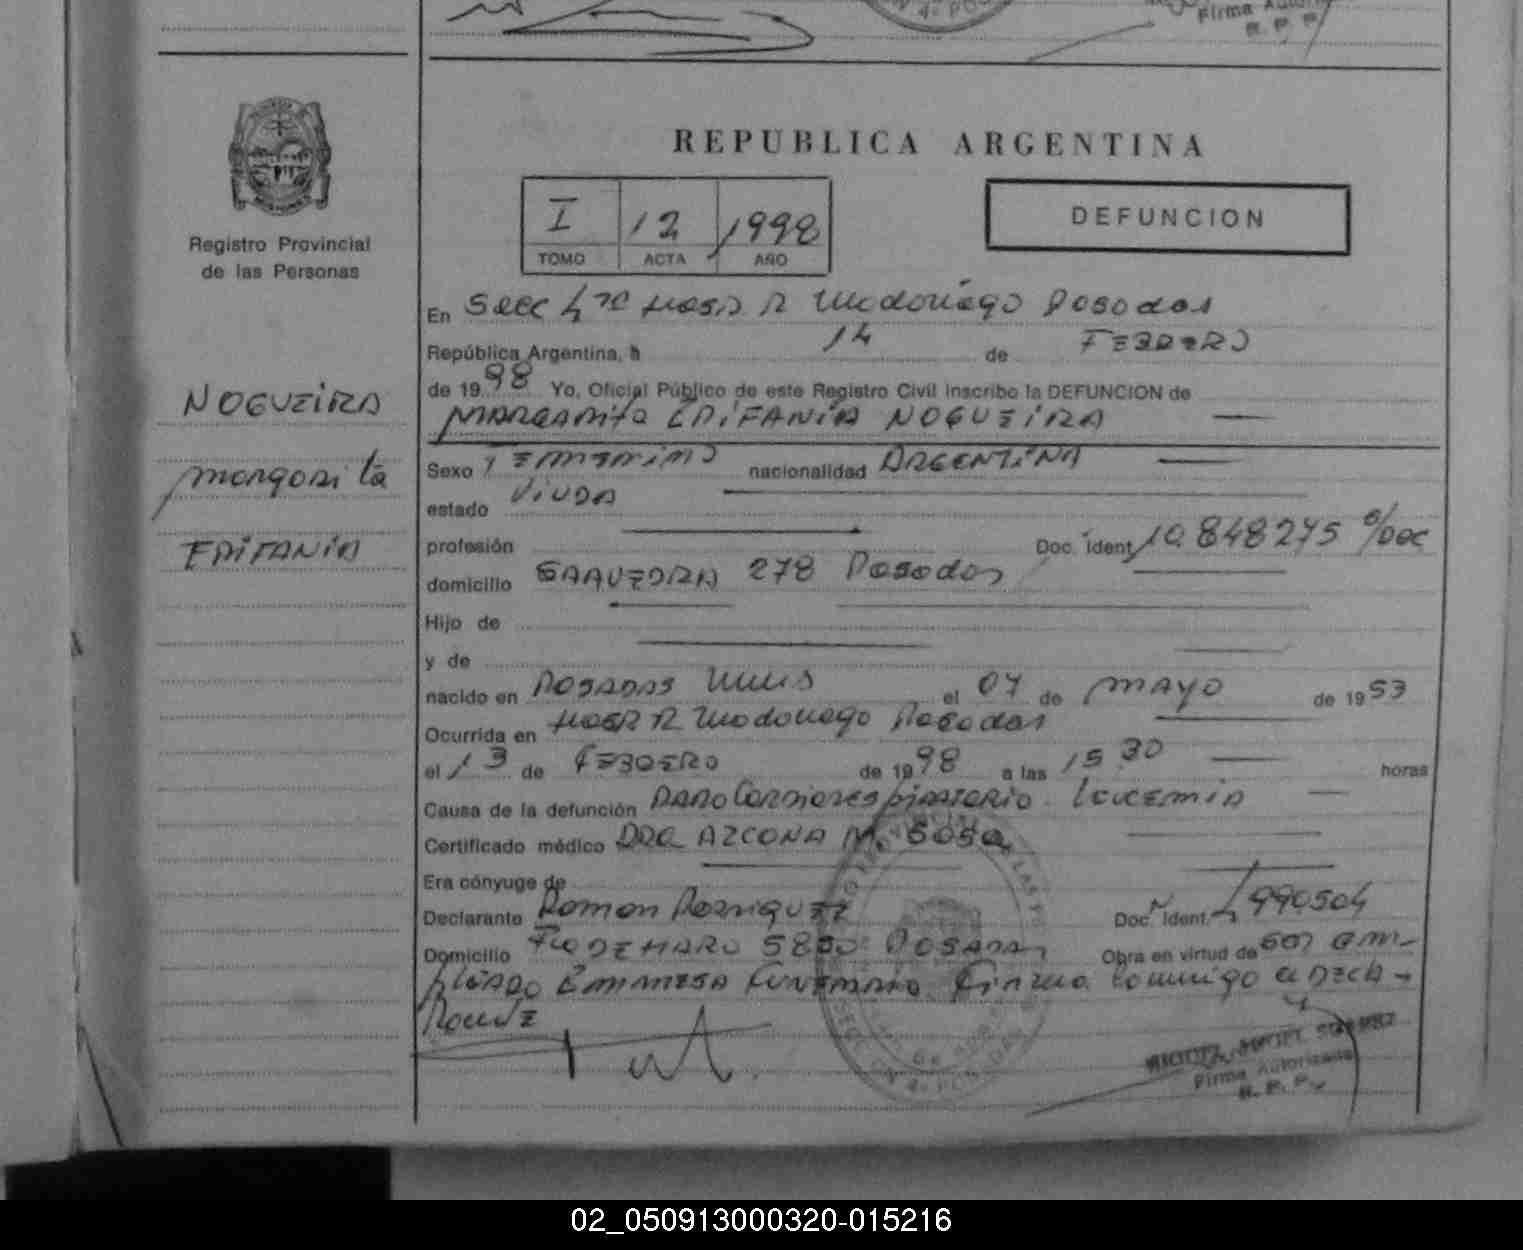 Firma Autori
R. P. P.
REPUBLICA ARGENTINA
I 12 1998
TOMO ACTA AÑO
DEFUNCION
Registro Provincial
de las Personas
NOGUEIRA
Margarita
EPIFANIA
En Secc 4ta Hosp R Madariaga Posadas
República Argentina, a 14 de FEBRERO
de 1998 Yo, Oficial Público de este Registro Civil inscribo la DEFUNCION de
MARGARITA EPIFANIA NOGUEIRA
Sexo Femenino nacionalidad ARGENTINA
estado VIUDA
profesión Doc. Ident. 10.848275 s/Doc
domicilio SAAVEDRA 278 Posadas
Hijo de
y de
nacido en POSADAS Mnes el 07 de MAYO de 1953
Ocurrida en HOSP R Madariaga Posadas
el 13 de FEBRERO de 1998 a las 15 30 horas
Causa de la defunción PARO Cardiorespiratorio. Leucemia
Certificado médico DRA AZCONA M. SOSA
Era cónyuge de
Declarante Ramon Rodriguez Doc. Ident. 7990504
Domicilio 5850 POSADAS Obra en virtud de ser em-
pleado Empresa Funeraria Firma conmigo el Decla-
rante
Firma Autorizada
R. P. P.
02_050913000320-015216